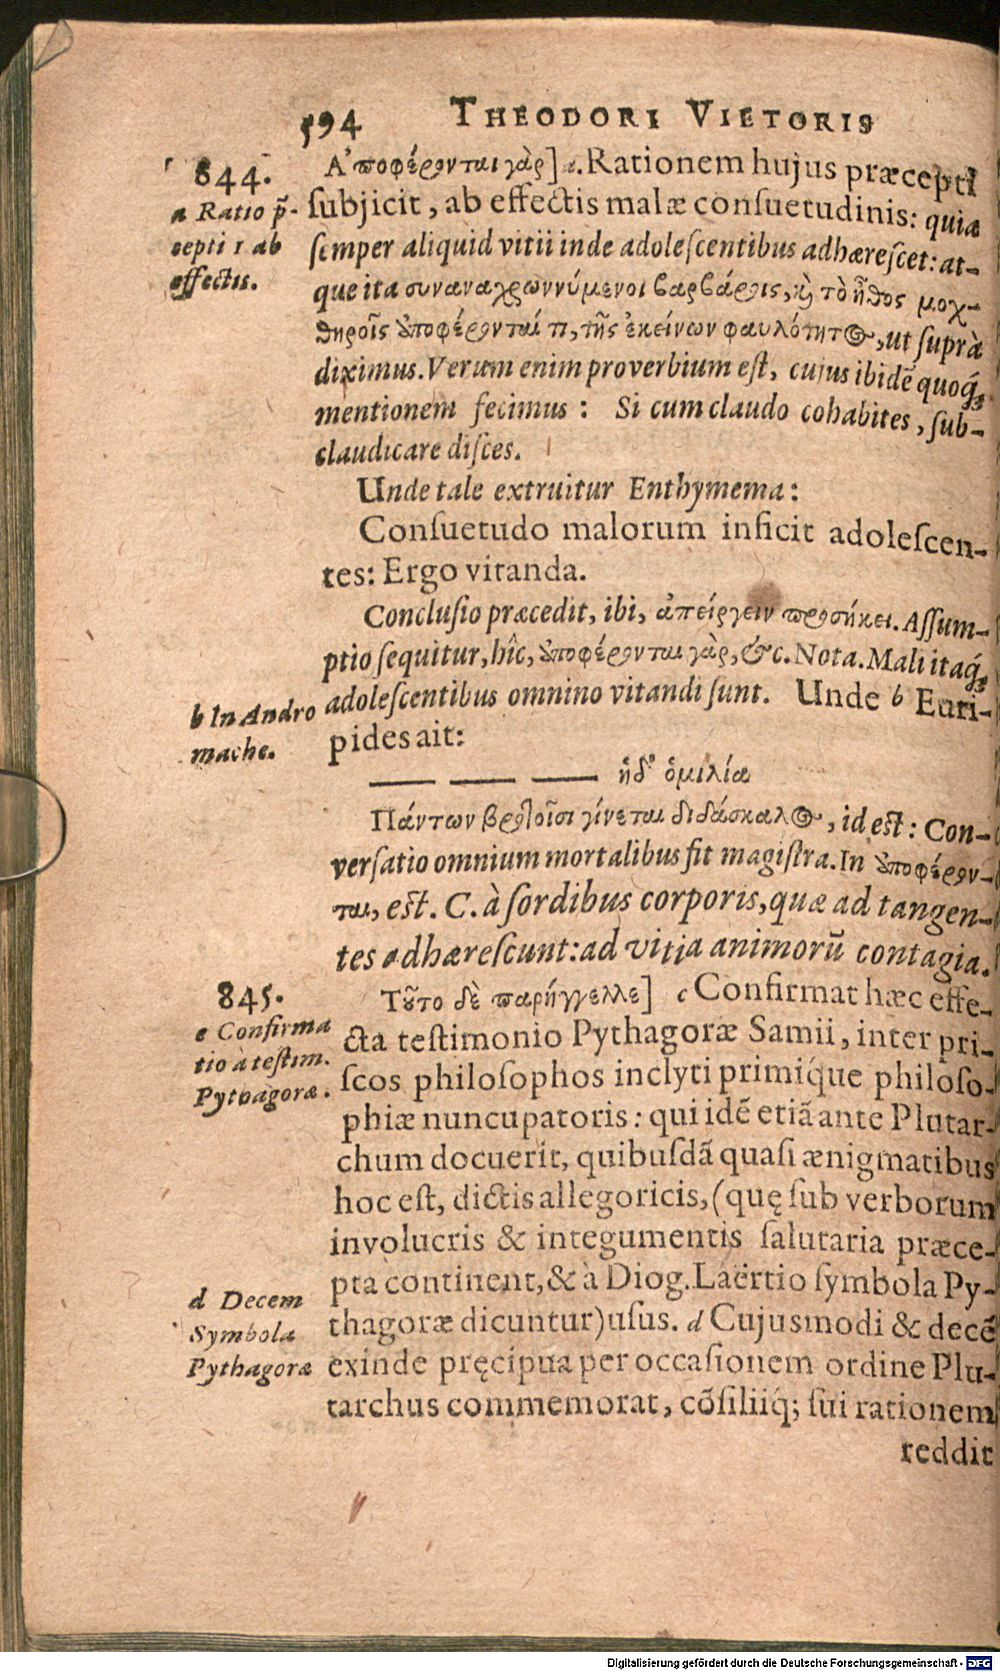 594 THEODORI VIETORIS
844.
a Ratio p̃-
cepti 1 ab
effectis.
Ἀποφέρονται γὰρ] a. Rationem hujus præcepti
ſubjicit, ab effectis malæ conſuetudinis: quia
ſemper aliquid vitii inde adoleſcentibus adhæreſcet: at-
que ita συναναχρωννύμενοι βαρβάροις, ϗ̀ τὸ ἦθος μοχ-
θηροῖς ἀποφέρονταί τι, τῆς ἐκείνων φαυλότητος, ut ſuprà
diximus. Verum enim proverbium eſt, cujus ibidē quoq́;
mentionem fecimus: Si cum claudo cohabites, ſub-
claudicare diſces.
Unde tale extruitur Enthymema:
Conſuetudo malorum inficit adoleſcen-
tes: Ergo vitanda.
Concluſio præcedit, ibi, ἀπείργειν προσήκει. Aſſum-
ptio ſequitur, hîc, ἀποφέρονται γὰρ, &c. Nota. Mali itaq́;
adoleſcentibus omnino vitandi ſunt. Unde b Euri-
pides ait:
b In Andro
mache.
— — — ἡδ' ὁμιλία
Πάντων βροτοῖσι γίνεται διδάσκαλος, id eſt: Con-
verſatio omnium mortalibus fit magiſtra. In ἀποφέρον-
ται, eſt. C. à ſordibus corporis, quæ ad tangen-
tes adhæreſcunt: ad vitia animorū contagia.
845.
c Confirma
tio à teſtim.
Pythagoræ.
Τοῦτο δὲ παρήγγελλε] c Confirmat hæc effe-
cta teſtimonio Pythagoræ Samii, inter pri-
ſcos philoſophos inclyti primíque philoſo-
phiæ nuncupatoris: qui idē etiā ante Plutar-
chum docuerit, quibuſdā quaſi ænigmatibus
hoc eſt, dictis allegoricis, (quę ſub verborum
involucris & integumentis ſalutaria præce-
pta continent, & à Diog. Laërtio ſymbola Py-
thagoræ dicuntur) uſus. d Cujusmodi & decē
exinde pręcipua per occaſionem ordine Plu-
tarchus commemorat, cōſiliiq́; ſui rationem
d Decem
Symbola
Pythagoræ
reddit
Digitalisierung gefördert durch die Deutsche Forschungsgemeinschaft - DFG